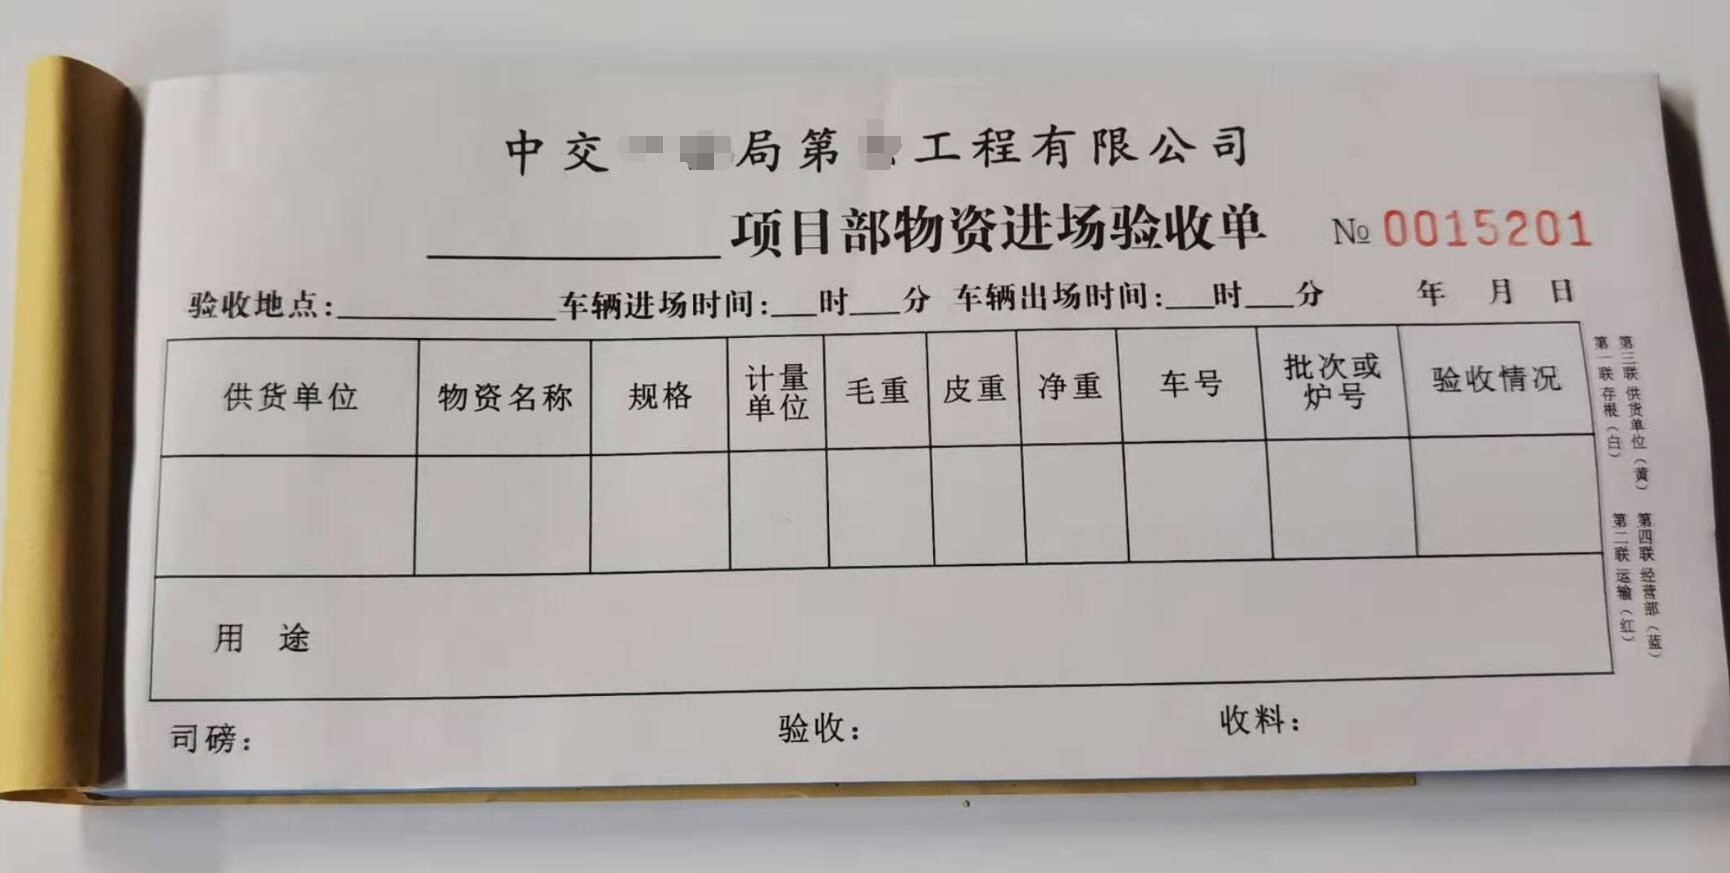 中交 局第 工程有限公司
项目部物资进场验收单 № 0015201
验收地点: 车辆进场时间: 时 分 车辆出场时间: 时 分 年 月 日
供货单位 物资名称 规格 计量单位 毛重 皮重 净重 车号 批次或炉号 验收情况
用 途
司磅: 验收: 收料:
第一联 存根(白)
第二联 运输(红)
第三联 供货单位(黄)
第四联 经营部(蓝)